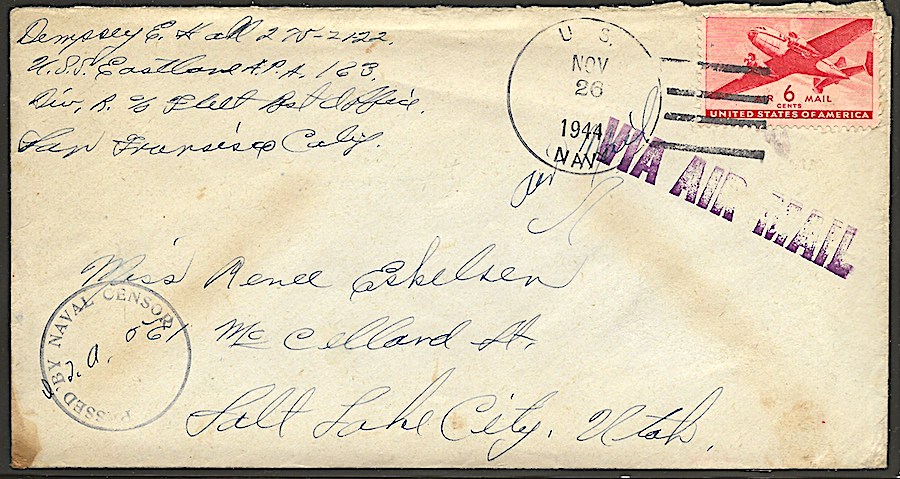 Dempsey E. Hall 275-21-22.
U.S.S. Eastland A.P.A. 163.
Div. R. % Fleet Post Office.
San Fransisco Calif.
U. S.
NOV
26
1944
NAVY
6
CENTS
AIR MAIL
UNITED STATES OF AMERICA
VIA AIR MAIL
Miss Renee Eskelsen
561 McCelland St.
Salt Lake City, Utah.
PASSED BY NAVAL CENSOR